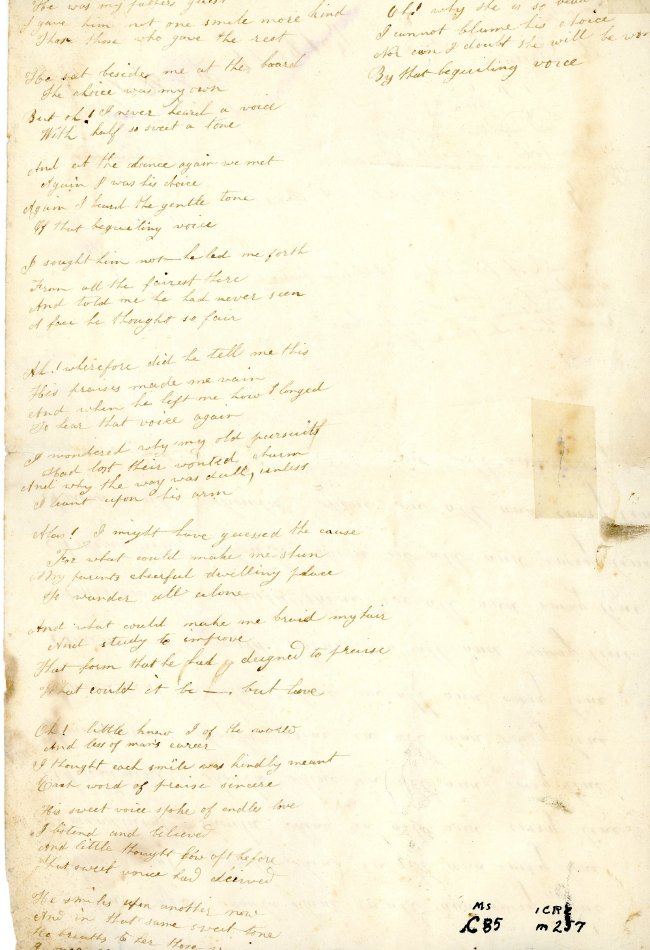 He was my fathers guest
I gave him not one smile more kind
Than those who gave the rest
He sat besides me at the board
The choice was my own
But oh! I never heard a voice
With half so sweet a tone
And at the dance again we met
Again I was his choice
Again I heard the gentle tone
Of that beguiling voice
I sought him not — he led me forth
From all the fairest there
And told me he had never seen
A face he thought so fair
Ah! wherefore did he tell me this
His praises made me vain
And when he left me how I longed
To hear that voice again
I wondered why my old pursuits
Had lost their wonted charm
And why the way was dull, unless
I leant upon his arm
Alas! I might have guessed the cause
For what could make me shun
My parents cheerful dwelling place
To wander all alone
And what could make me braid my hair
And study to improve
That form that he had deigned to praise
What could it be — but love
Oh! little knew I of the world
And less of man's career
I thought each smile was kindly meant
Each word of praise sincere
His sweet voice spoke of endless love
I listend and believed
And little thought how oft before
That sweet voice had deceived
He smiles upon another now
And in that same sweet tone
He breaths to her those
Oh! why she is so
I cannot blame his choice
Nor can I doubt she will be
By that beguiling voice
MS
C85
ICRL
m257